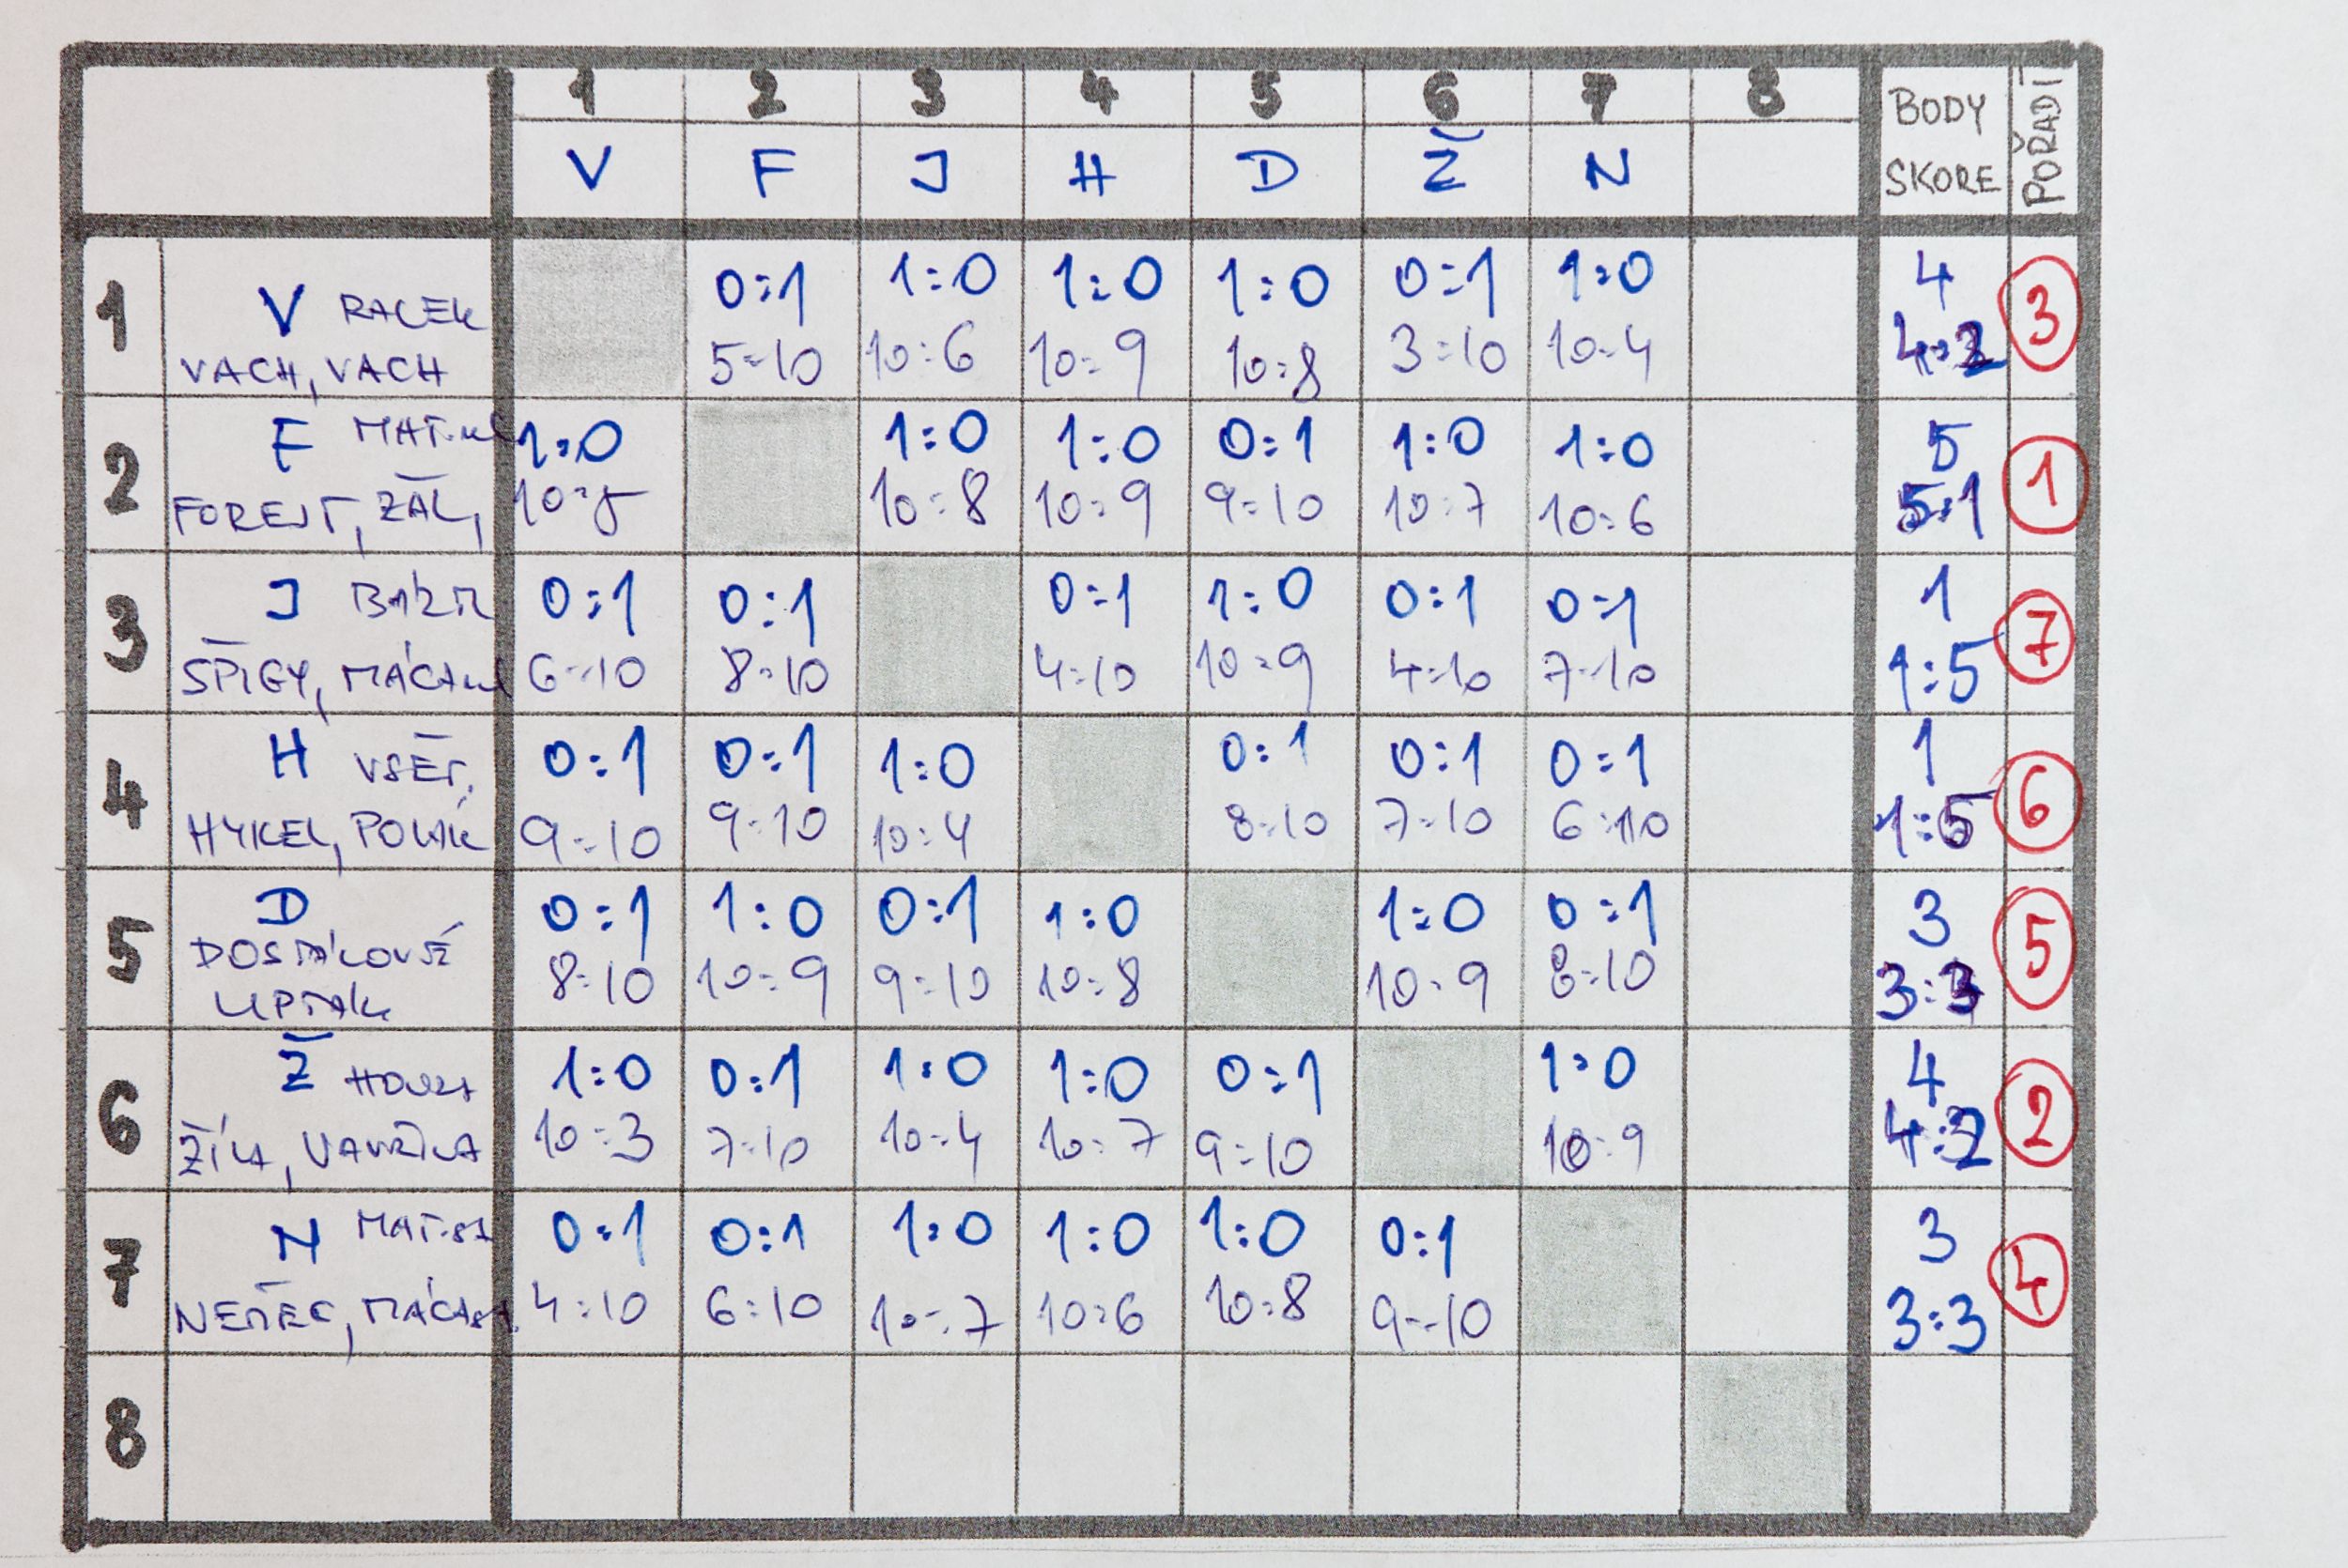 1 2 3 4 5 6 7 8 BODY SKORE POŘADÍ
V F J H D Ž N
1 V RACEK 0:1 1:0 1:0 1:0 0:1 1:0 4 3
VACH, VACH 5:10 10:6 10:9 10:8 3:10 10:4 4:2
2 F 1:0 1:0 1:0 0:1 1:0 1:0 5 1
FOREJT, ŽÁL, 10:5 10:8 10:9 9:10 10:7 10:6 5:1
3 J 0:1 0:1 0:1 1:0 0:1 0:1 1 7
ŠPIGY, 6:10 8:10 4:10 10:9 4:10 7:10 1:5
4 H VŠET. 0:1 0:1 1:0 0:1 0:1 0:1 1 6
HYKEL, POLÁK 9:10 9:10 10:4 8:10 7:10 6:10 1:5
5 D 0:1 1:0 0:1 1:0 1:0 0:1 3 5
8:10 10:9 9:10 10:8 10:9 8:10 3:3
6 Ž 1:0 0:1 1:0 1:0 0:1 1:0 4 2
10:3 7:10 10:4 10:7 9:10 10:9 4:2
7 N 0:1 0:1 1:0 1:0 1:0 0:1 3 4
NĚMEC, 4:10 6:10 10:7 10:6 10:8 9:10 3:3
8